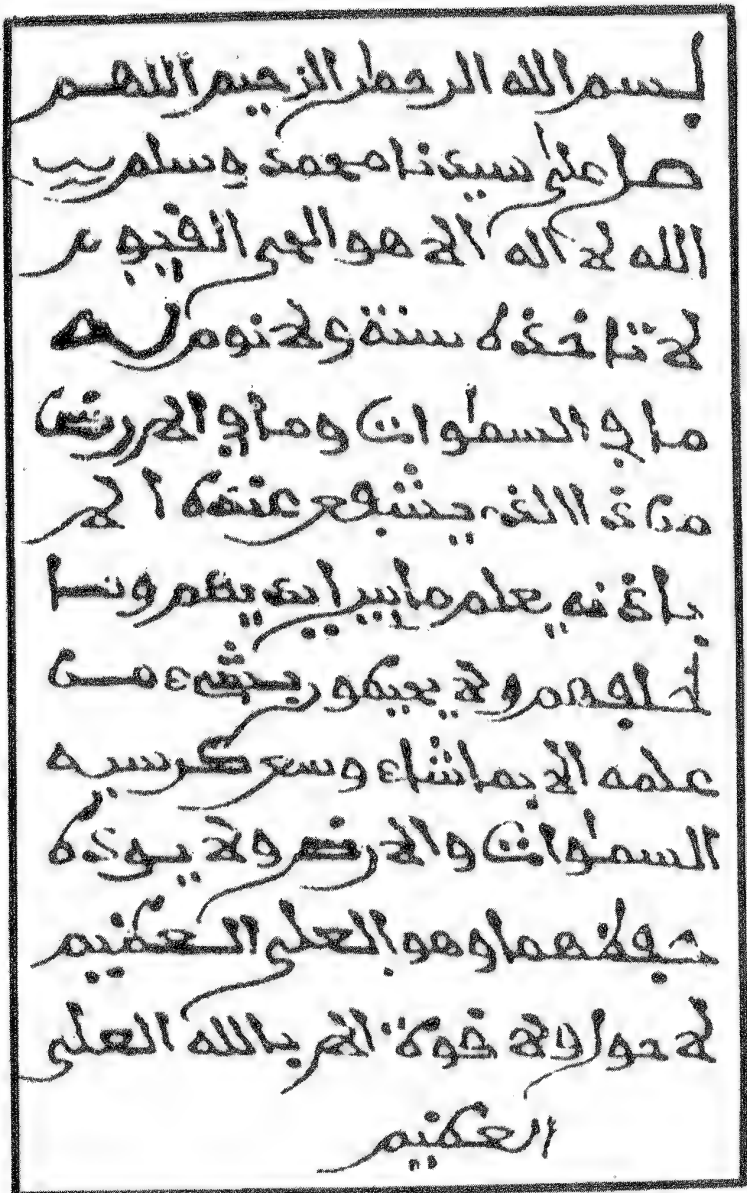 بسم الله الرحمن الرحيم اللهم
صل على سيدنا محمد وسلم
الله لا اله الا هو الحي القيوم
لا تاخذه سنة ولا نوم له
ما في السموات وما في الارض
من ذا الذي يشفع عنده الا
باذنه يعلم ما بين ايديهم وما
خلفهم ولا يحيطون بشيء من
علمه الا بما شاء وسع كرسيه
السموات والارض ولا يوده
حفظهما وهو العلي العظيم
لا حول ولا قوة الا بالله العلي
العظيم